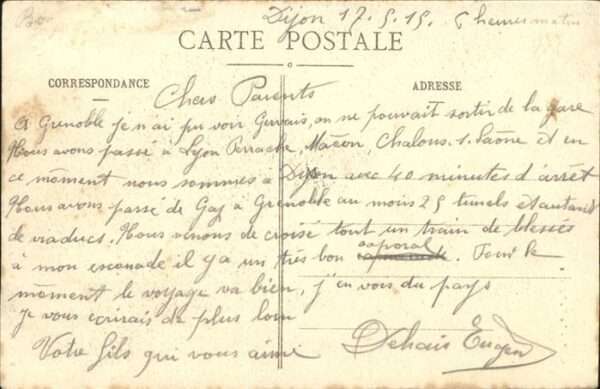 Dijon 17.5.15. 6 heures matin
CARTE POSTALE
CORRESPONDANCE
ADRESSE
Chers Parents
A Grenoble je n'ai pu voir Gervais, on ne pouvait sortir de la gare
Nous avons passé à Lyon Perrache, Mâcon, Chalons. s. Saône et en
ce moment nous sommes à Dijon avec 40 minutes d'arrêt
Nous avons passé de Gap à Grenoble au mois 25 tunels et autant
de viaducs. Nous venons de croisé tout un train de blessés
à mon escouade il y a un très bon caporal. Pour le
moment le voyage va bien, j'en vois du pays
je vous écrirais de plus loin
Votre fils qui vous aime
Dehais Eugène